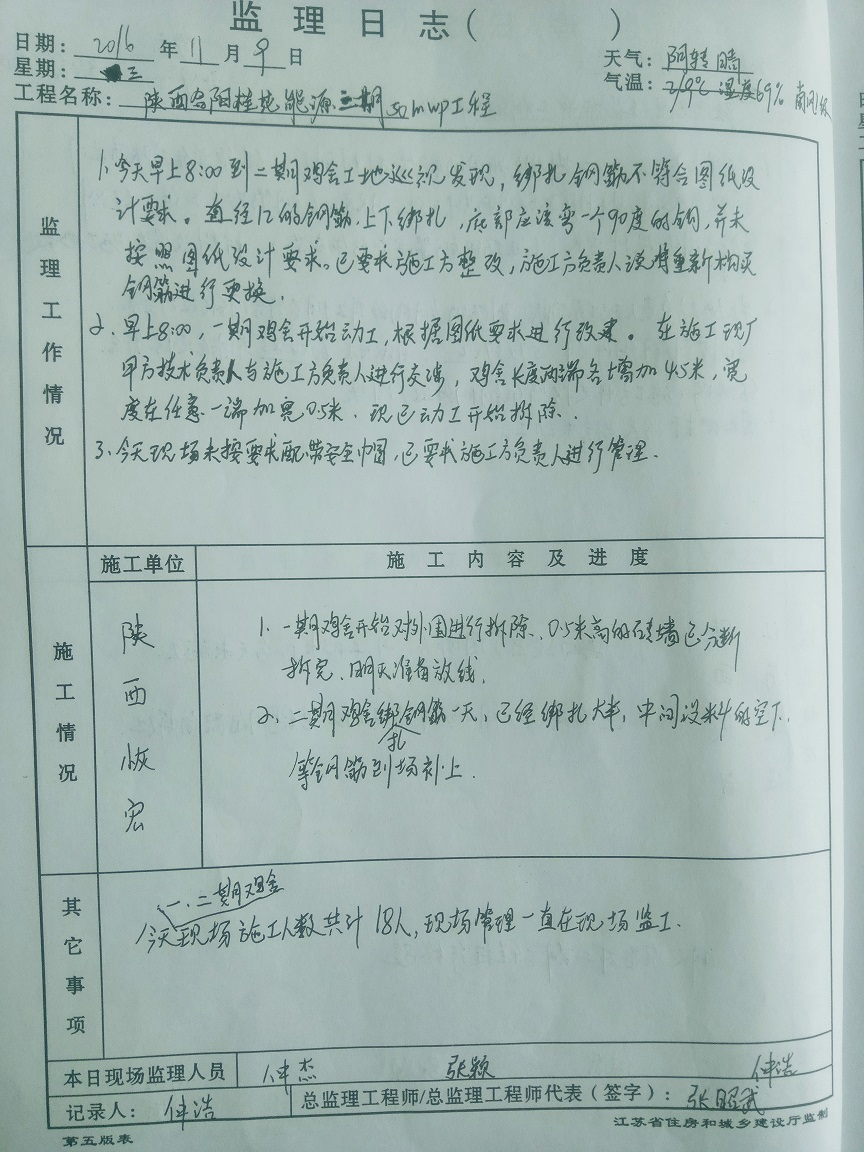 监理日志( )
日期: 2016 年 11 月 9 日
天气: 阴转晴
星期: 三
气温: 3/9℃ 湿度69% 南风级
工程名称: 陕西合阳桂 能源二期 50mwp工程
监理工作情况
1、今天早上8:00到二期鸡舍工地巡视发现,绑扎钢筋不符合图纸设
计要求。直径12的钢筋,上下绑扎,底部应该弯一个90度的钩,并未
按照图纸设计要求。已要求施工方整改,施工方负责人说将重新购买
钢筋进行更换.
2、早上8:00,一期鸡舍开始动工,根据图纸要求进行改建。在施工现厂
甲方技术负责人与施工方负责人进行交涉,鸡舍长度两端各增加4.5米,宽
度在任意一端加宽0.5米.现已动工开始拆除.
3、今天现场未按要求配带安全巾冒,已要求施工方负责人进行管理.
施工情况
施工单位
施工内容及进度
陕西恢宏
1、一期鸡舍开始对外围进行拆除、0.5米高的砖墙已 断
拆完、明天准备放线.
2、二期鸡舍绑扎钢筋一天、已经绑扎大半,中间没料的空下.
等钢筋到场补上.
其它事项
一、二期鸡舍
今天现场施工人数共计18人,现场管理一直在现场监工.
本日现场监理人员 仲杰 张颖 仲浩
记录人: 仲浩 总监理工程师/总监理工程师代表(签字): 张昭武
第五版表
江苏省住房和城乡建设厅监制